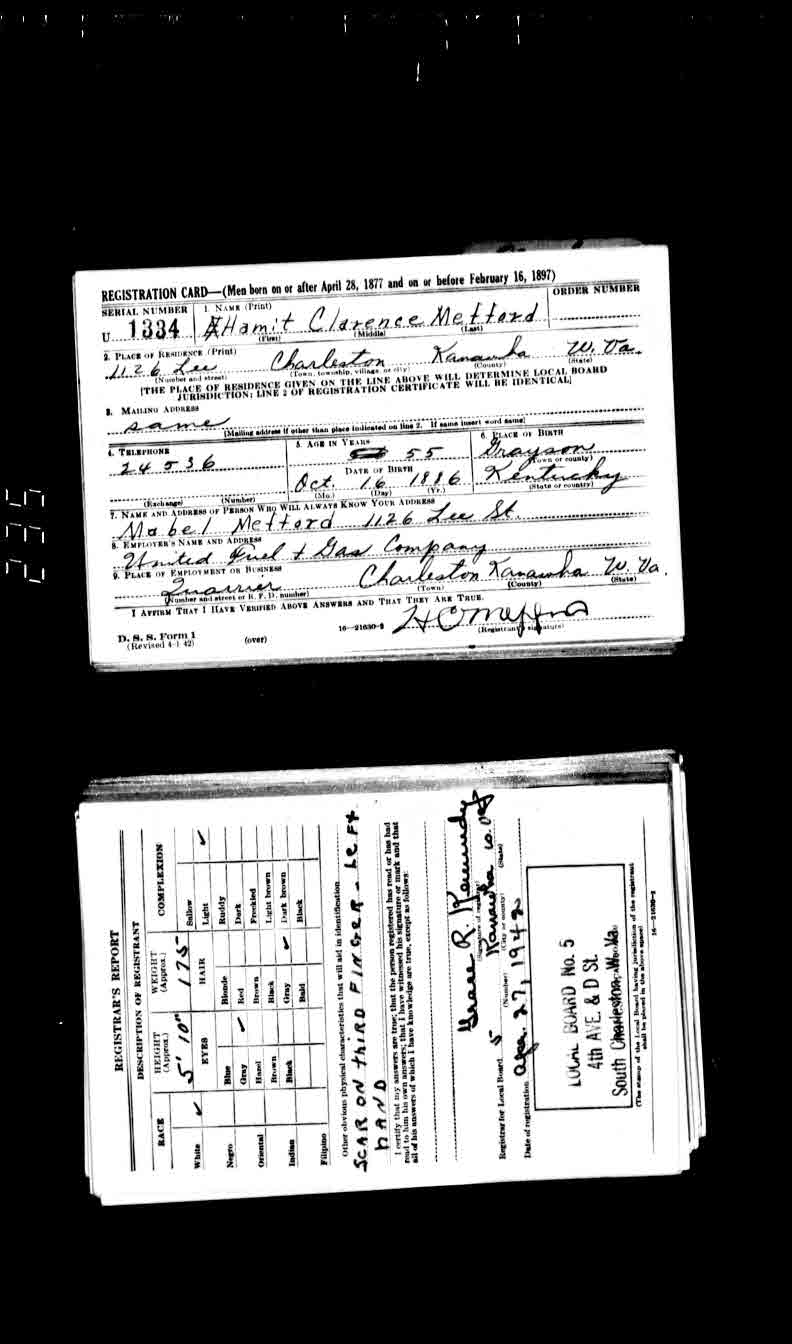 REGISTRATION CARD—(Men born on or after April 28, 1877 and on or before February 16, 1897)
SERIAL NUMBER 1. NAME (Print) ORDER NUMBER
U 1334 Hamit Clarence Mefford
(First) (Middle) (Last)
2. PLACE OF RESIDENCE (Print)
1126 Lee Charleston Kanawha W. Va.
(Number and street) (Town, township, village, or city) (County) (State)
[THE PLACE OF RESIDENCE GIVEN ON THE LINE ABOVE WILL DETERMINE LOCAL BOARD
JURISDICTION; LINE 2 OF REGISTRATION CERTIFICATE WILL BE IDENTICAL]
3. MAILING ADDRESS
same
[Mailing address if other than place indicated on line 2. If same insert word same]
4. TELEPHONE 5. AGE IN YEARS 6. PLACE OF BIRTH
24536 55 Grayson
(Town or county)
DATE OF BIRTH
Oct. 16 1886 Kentucky
(Exchange) (Number) (Mo.) (Day) (Yr.) (State or country)
7. NAME AND ADDRESS OF PERSON WHO WILL ALWAYS KNOW YOUR ADDRESS
Mabel Mefford 1126 Lee St.
8. EMPLOYER'S NAME AND ADDRESS
United Fuel + Gas Company
9. PLACE OF EMPLOYMENT OR BUSINESS
Quarrier Charleston Kanawha W. Va.
(Number and street or R. F. D. number) (Town) (County) (State)
I AFFIRM THAT I HAVE VERIFIED ABOVE ANSWERS AND THAT THEY ARE TRUE.
H C Mefford
D. S. S. Form 1
(Revised 4-1-42) (over) 16—21630-2 (Registrant's signature)
235
REGISTRAR'S REPORT
DESCRIPTION OF REGISTRANT
RACE HEIGHT (Approx.) WEIGHT (Approx.) COMPLEXION
5' 10" 175 Sallow
White ✓ EYES HAIR Light ✓
Ruddy
Negro Blue Blonde Dark
Gray ✓ Red Freckled
Oriental Hazel Brown Light brown
Brown Black Dark brown
Indian Black Gray ✓ Black
Bald
Filipino
Other obvious physical characteristics that will aid in identification
SCAR ON THIRD FINGER - LEFT
HAND
I certify that my answers are true; that the person registered has read or has had
read to him his own answers; that I have witnessed his signature or mark and that
all of his answers of which I have knowledge are true, except as follows:
Grace R. Kennedy
(Signature of registrar)
Registrar for Local Board 5 Kanawha W. Va
(Number) (City or county) (State)
Date of registration Apr. 27, 1942
LOCAL BOARD No. 5
4th AVE. & D St.
South Charleston, W. Va.
(The stamp of the Local Board having jurisdiction of the registrant
shall be placed in the above space)
16—21630-2